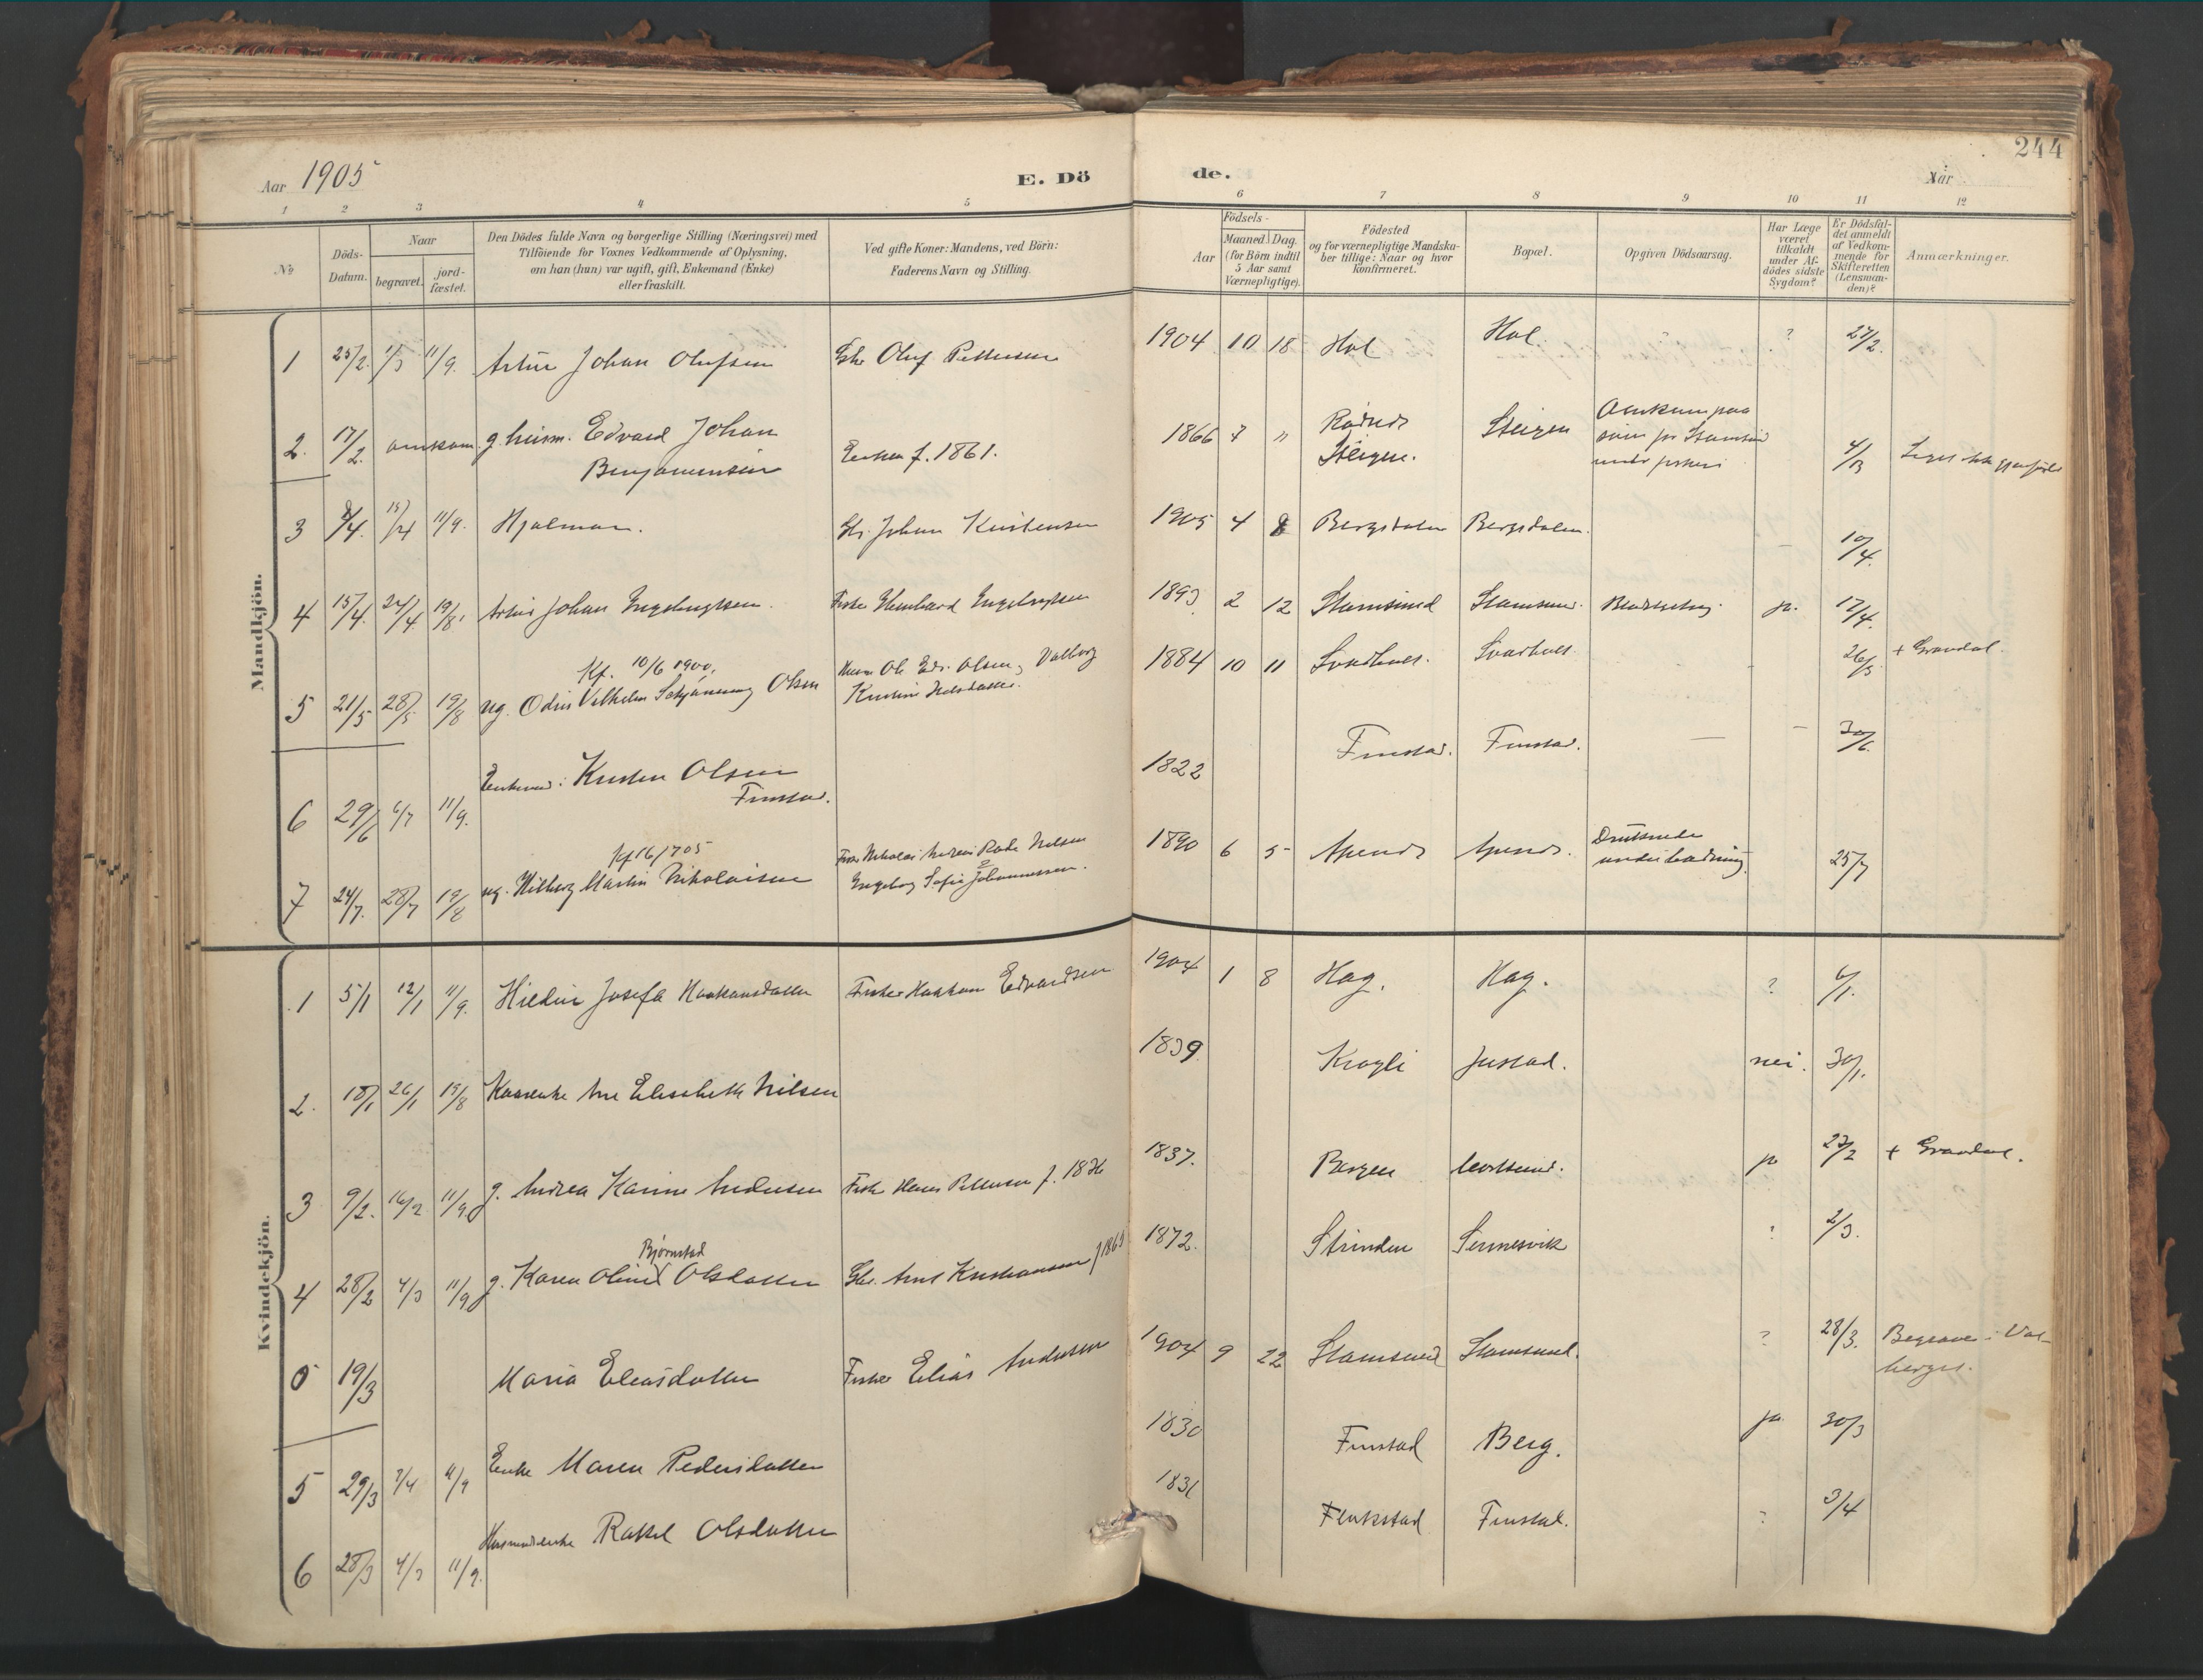 244
Aar 1905
E. Dö
de.
Aar
1 2 3 4 5 6 7 8 9 10 11 12
No
Döds-
Datum.
Naar
begravet.
jord-
fæstet.
Den Dödes fulde Navn og borgerlige Stilling (Næringsvei) med
Tilföiende for Voxnes Vedkommende af Oplysning,
om han (hun) var ugift, gift, Enkemand (Enke)
eller fraskilt.
Ved gifte Koner: Mandens, ved Börn:
Faderens Navn og Stilling.
Födsels-
Aar
Maaned Dag.
(for Börn indtil
5 Aar samt
Værnepligtige).
Födested
og for værnepligtige Mandska-
ber tillige: Naar og hvor
Konfirmeret.
Bopæl.
Opgiven Dödsaarsag.
Har Læge
været
tilkaldt
under Af-
dödes sidste
Sygdom?
Er Dödsfal-
det anmeldt
af Vedkom-
mende for
Skifteretten
(Lensman-
den)?
Anmærkninger.
Mandkjön.
1 25/2. 1/3 11/9. Artur Johan Olufsen Oluf Pettersen 1904 10 18 Hol Hol. ? 27/2.
2. 17/2. omkom g. husm. Edvard Johan
Benjaminsen f. 1861. 1866 7 "
Steigen. Steigen
Omkom paa
3 8/4. 11/9. Hjalmar. Johan Kristensen 1905 4 8 Bergsdalen Bergsdalen. 10/4.
4 15/4. 24/4. 19/8. Artur Johan Engebrigtsen. Engebrigtsen 1893 2 12 Stamsund Stamsund. ja. 17/4.
Kf. 10/6 1900.
5 21/5 28/5 19/8 ug. Odin Vilhelm Olsen
Ole Edv. Olsen, Valborg
1884 10 11 Svarholt. Svarholt 26/5. + Gravdal.
6 29/6 6/7 11/9. Kristen Olsen
Finstad. 1822 Finstad. Finstad. 30/6
Kf 16/7 05
7 24/7. 28/7 19/8 ug. Martin Nikolaisen
Nikolai Nilsen
Engeborg Sofie Johannessen.
1890 6 5
Druknede
under badning. 25/7
Kvindekjön.
1 5/1 12/1 11/9. Josefa Haakonsdatter Fisker Haakon Edvardsen 1904 1 8 Hag. Hag. ? 6/1.
2. 18/1 26/1 19/8 Ane Elisabeth Nilsen 1839 Kragli Justad. nei. 30/1.
3 9/2. 16/2 11/9. g. Andrea Karine Andersen Hans Pettersen f. 1836 1837. Bergen ja 27/2 + Gravdal.
Bjørnstad
4 28/2 4/3 11/9 g. Karen Oline Olsdatter Arnt Kristiansen f 1863 1872. Strinden Sennesvik ? 2/3.
0 19/3 Maria Eliasdatter Fisker Elias Andersen 1904 9 22 Stamsund Stamsund. ? 28/3. Begravet i Val-
berget.
5 29/3 7/4 11/9 Enke Maren Pedersdatter 1830 Finstad Berg. ja 30/3
6 28/3 4/3 11/9. Rakel Olsdatter 1831 Flakstad Finstad. ? 3/4